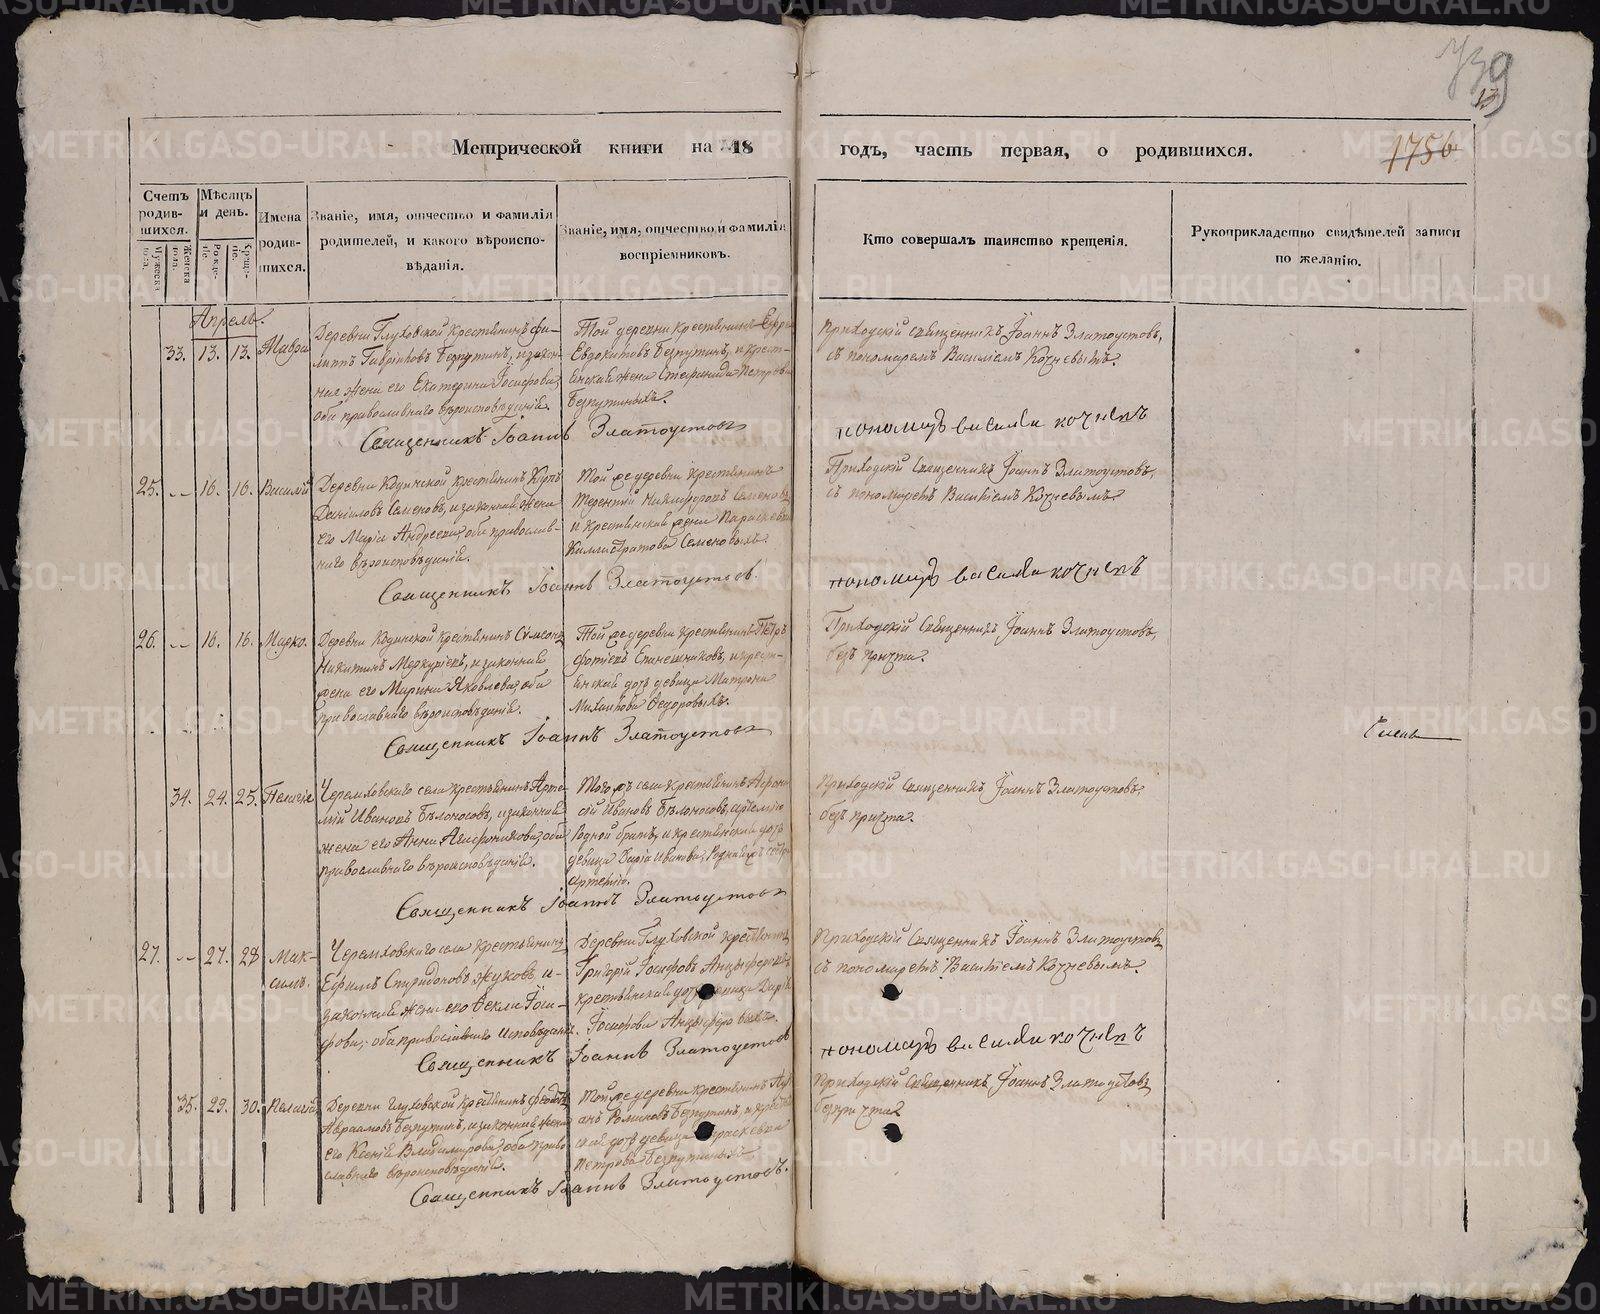 739
13
1756
Метрической книги на 18 годъ, часть первая, о родившихся.
Счетъ родив-шихся.
Мужеска пола.
Женска пола.
Мѣсяцъ и день.
Рожде-ніе.
Креще-ніе.
Имена родив-шихся.
Званіе, имя, отчество и фамилія
родителей, и какого вѣроиспо-
вѣданія.
Званіе, имя, отчество и фамилія
воспріемниковъ.
Кто совершалъ таинство крещенія.
Рукоприкладство свидѣтелей записи
по желанію.
Апрель.
33. 13. 13. Мавра
Деревни Глуховской крестьянинъ Фи-
липпъ Гавриловъ Безпутинъ, и закон-
ная жена его Екатерина Іосифова,
оба православнаго вѣроисповѣданія.
Той деревни крестьянинъ
Евдокимовъ Безпутинъ, и крест-
янская жена Стефанида Петрова
Безпутиныхъ.
Приходскій священникъ Іоаннъ Златоустовъ,
съ пономаремъ Василіемъ Кочневымъ.
Священникъ Іоаннъ Златоустовъ
пономарь василеи кочневъ
25. -- 16. 16. Василій
Деревни Кодинской крестьянинъ
Даниловъ Семеновъ, и законная жена
его Марія Андреева, оба православ-
наго вѣроисповѣданія.
Той же деревни крестьянинъ
Терентій Никифоровъ Семеновъ,
и крестьянская жена Параскева
Каллистратова Семеновыхъ.
Приходскій Священникъ Іоаннъ Златоустовъ,
съ пономаремъ Василіемъ Кочневымъ.
Священникъ Іоаннъ Златоустовъ.
пономарь василеи кочневъ
26. -- 16. 16. Марко.
Деревни Кодинской крестьянинъ Сѵмеонъ
Никитинъ Меркурьевъ, и законная
жена его Марина Яковлева, оба
православнаго вѣроисповѣданія.
Той же деревни крестьянинъ Петръ
Фотіевъ Епанешниковъ, и крест-
янская дочь девица Матрона
Михайлова Федоровыхъ.
Приходскій Священникъ Іоаннъ Златоустовъ,
безъ причта.
Священникъ Іоаннъ Златоустовъ
34. 24. 25. Пелагія
Черемховскаго села крестьянинъ Арте-
мій Ивановъ Бѣлоносовъ, и законная
жена его Анна Агафоникова, оба
православнаго вѣроисповѣданія.
Того жъ села крестьянинъ Афана-
сій Ивановъ Бѣлоносовъ, Артемію
родной братъ, и крестьянская дочь
девица Дарія Иванова, родная сестра
Артемію.
Приходскій Священникъ Іоаннъ Златоустовъ,
безъ причта.
Священникъ Іоаннъ Златоустовъ
27. -- 27. 28 Мак-
симъ.
Черемховскаго села крестьянинъ
Ефимъ Спиридоновъ Жуковъ, и
законная жена его Fекла Іоси-
фова, оба православнаго исповѣданія.
Деревни Глуховской крестьянинъ
Григорій Іосифовъ Анцыферовъ,
крестьянская дочь девица Дарія
Іосифова Анцыферовыхъ.
Приходскій Священникъ Іоаннъ Златоустовъ,
съ пономаремъ Василіемъ Кочневымъ.
Священникъ Іоаннъ Златоустовъ
пономарь василеи кочневъ
35. 29. 30. Пелагія
Деревни Глуховской крестьянинъ
Авраамовъ Безпутинъ, и законная жена
его Ксенія Владимирова, оба право-
славнаго вѣроисповѣданія.
Той же деревни крестьянинъ
Романовъ Безпутинъ, и крестьян-
ская дочь девица Параскева
Петрова Безпутиныхъ.
Приходскій Священникъ Іоаннъ Златоустовъ,
безъ причта.
Священникъ Іоаннъ Златоустовъ.